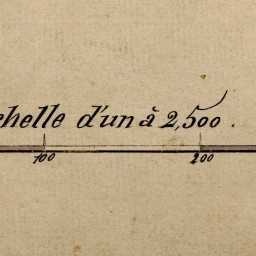 echelle d'un à 2,500.
100 200